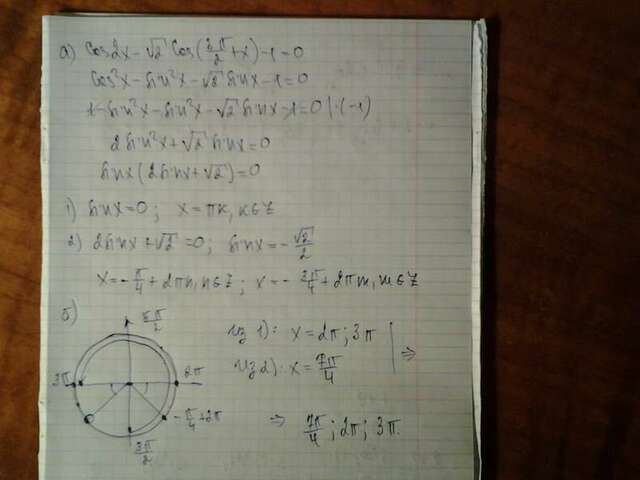 а) cos2x - √2 cos(3π/2 + x) - 1 = 0
cos²x - sin²x - √2 sinx - 1 = 0
1 - sin²x - sin²x - √2 sinx - 1 = 0 | ·(-1)
2sin²x + √2 sinx = 0
sinx(2sinx + √2) = 0
1) sinx = 0; x = πк, к ∈ Z
2) 2sinx + √2 = 0; sinx = -√2/2
x = -π/4 + 2πn, n ∈ Z; x = -3π/4 + 2πm, m ∈ Z
б)
5π/2
3π
2π
-π/4 + 2π
3π/2
Из 1): x = 2π; 3π
Из 2): x = 7π/4
⇒
⇒ 7π/4; 2π; 3π.